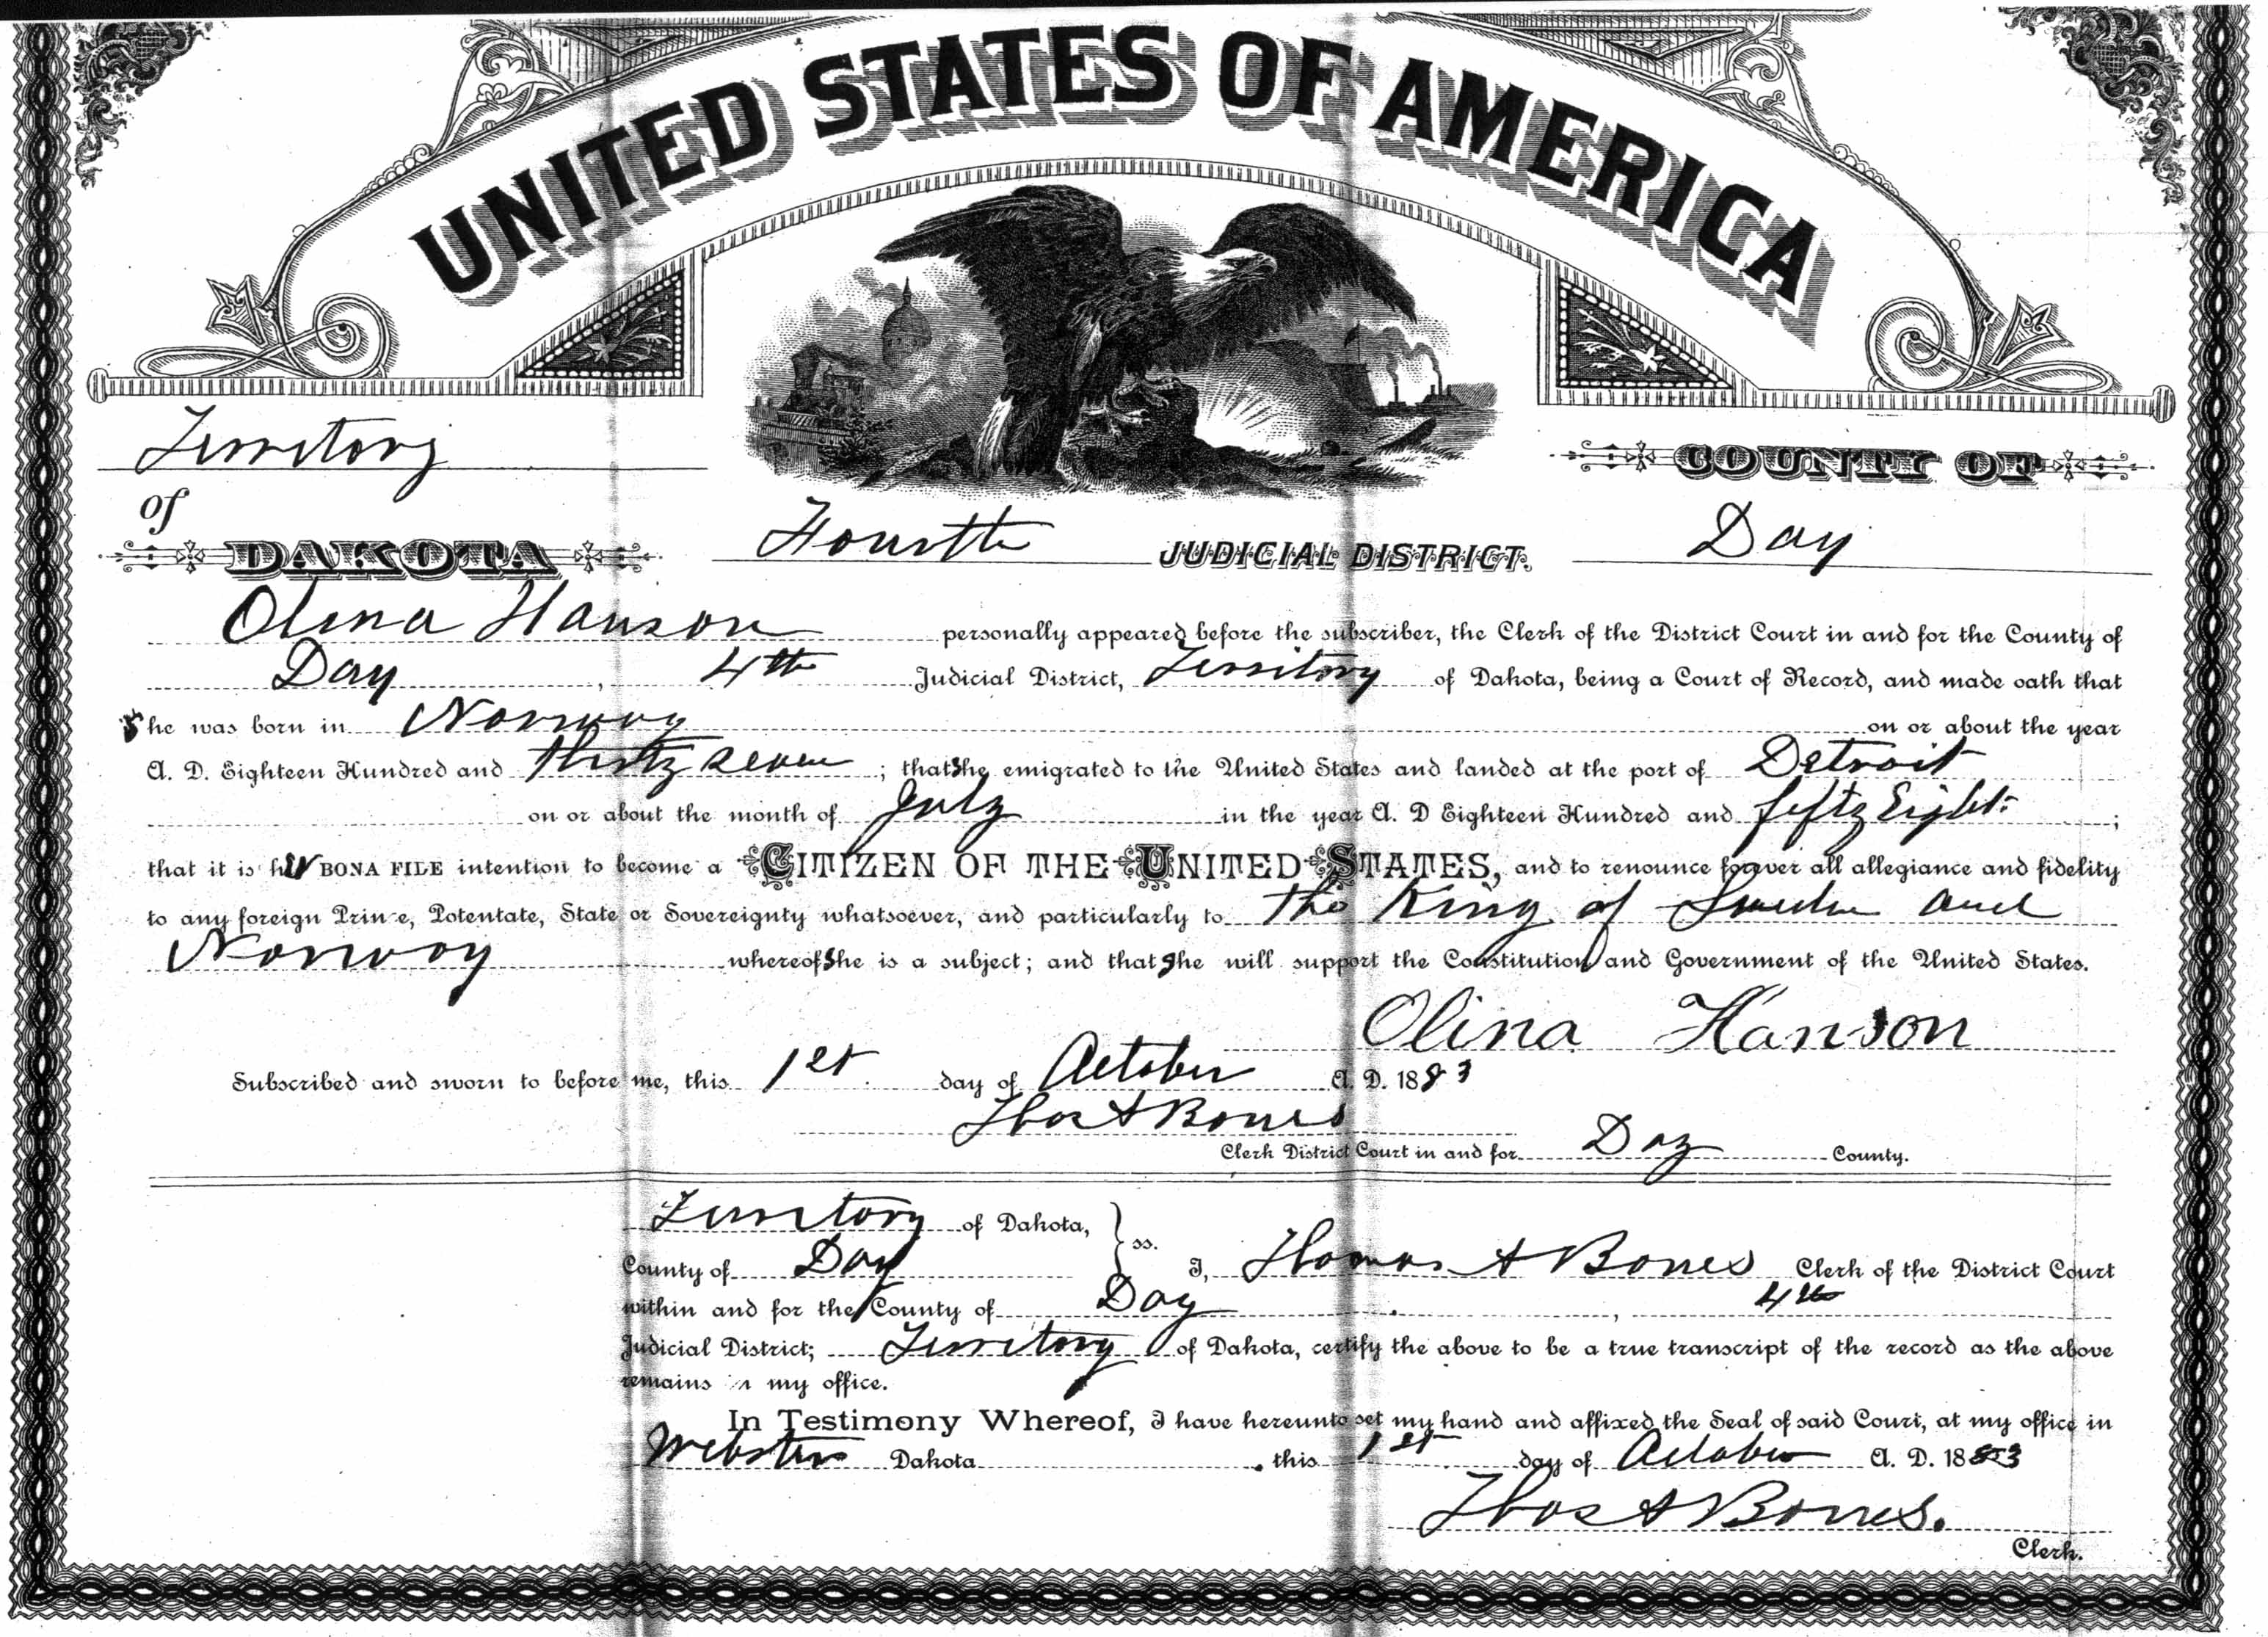 UNITED STATES OF AMERICA
Territory
of
DAKOTA
Fourth JUDICIAL DISTRICT.
COUNTY OF
Day
Olina Hanson personally appeared before the subscriber, the Clerk of the District Court in and for the County of
Day, 4th Judicial District, Territory of Dakota, being a Court of Record, and made oath that
She was born in Norway on or about the year
A. D. Eighteen Hundred and thirty seven; that She emigrated to the United States and landed at the port of Detroit
on or about the month of July in the year A. D Eighteen Hundred and fifty Eight;
that it is her BONA FILE intention to become a CITIZEN OF THE UNITED STATES, and to renounce forever all allegiance and fidelity
to any foreign Prince, Potentate, State or Sovereignty whatsoever, and particularly to the King of Sweden and
Norway whereof She is a subject; and that She will support the Constitution and Government of the United States.
Olina Hanson
Subscribed and sworn to before me, this 1st. day of October A. D. 1883
Thos A Bones
Clerk District Court in and for Day County.
Territory of Dakota,
County of Day } ss. I, Thomas A Bones Clerk of the District Court
within and for the County of Day, 4th
Judicial District; Territory of Dakota, certify the above to be a true transcript of the record as the above
remains in my office.
In Testimony Whereof, I have hereunto set my hand and affixed the Seal of said Court, at my office in
Webster Dakota, this 1st day of October A. D. 1883
Thos A Bones.
Clerk.